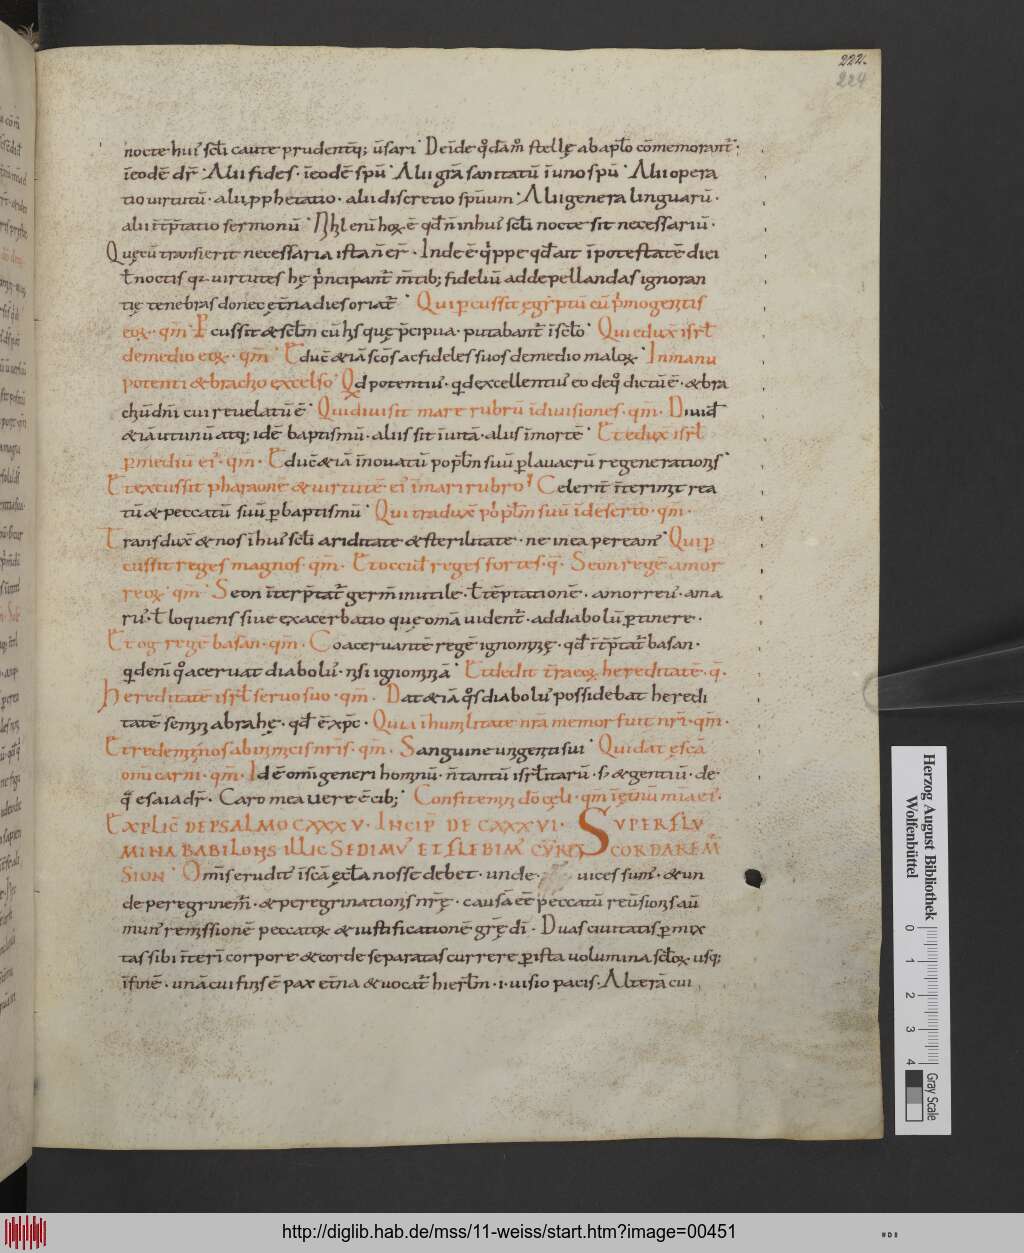 222.
224
nocte hui᾽ sc̄li caute prudentq; ūsari· Deīde q̊dam̊ stellę ab ap̄lo cōmemorant᷒·
īeodē dr̄· Alii fides· īeodē sp̄u· Alii gr̄a sanitatū ī uno sp̄u· Alii opera
tio uirtutū· alii pphetatio· alii discretio sp̄uum· Alii genera linguarū·
alii īt̄p̄tatio sermonū· Nhl enī hoꝝ ē qd̄ n̄ in hui᾽ sc̄li nocte sit necessariū·
Quę cū transierit necessaria ista n̄ er̄· Inde ē q̍ppe qd̄ ait ī potestatē diei
ł noctis qz uirtutes hę p̍ncipant᷒ m̄tib; fideliū ad depellandas ignoran
tię tenebras donec ęt̄na dies oriat᷒· Qui p̱cussit egyptū cū p̍mogenitis
eoꝝ· qm̄· P̱cussit & sc̄lm cū his quę p̄cipua putabant᷒ ī sc̄lo· Qui eduxit isrł
de medio eoꝝ· qm̄· Educ̄ & iā sc̄os ac fideles suos de medio maloꝝ· In manu
potenti & brachio excelso· Qd potentiu᾽· qd excellentiu᾽ eo de q̊ dictū ē· & bra
chiū dn̄i cui reuelatū ē· Qui diuisit mare rubrū ī diuisiones· qm̄· Diuid᷒
& iā ut unū atq; idē baptismū· aliis sit ī uitā· aliis ī mortē· Et eduxit isrł
p̱ mediū ei᾽· qm̄· Educ̄ & iā īnouatū popłm suū p̱ lauacrū regenerationis·
Et excussit pharaone & uirtutē ei᾽ ī mari rubro· Celerit᷒ īterimit rea
tū & peccatū suū p̱ baptismū· Qui traduxit popłm suū ī deserto· qm̄·
Transduxit & nos ī hui᾽ sc̄li ariditate & sterilitate· ne in ea peream᾽· Qui p̱
cussit reges magnos· qm̄· Et occid᷒ reges fortes· q̄· Seon regē amor
reoꝝ· qm̄· Seon īterp̄tat᷒ germ̄ inutile· ł tēptationē· amorreu᾽· ama
ru᾽· ł loquens siue exacerbatio quę om̄a uident᷒· ad diabolū p̱tinere·
Et og regē basan· qm̄· Coaceruantē regē ignominię· qd̄ īt̄p̄tat᷒ basan·
qd enī q̊aceruat diabolu᾽· nisi ignominiā· Et dedit t̄ra eoꝝ hereditatē· q̄·
Hereditatē isrł seruo suo· qm̄· Dat & iā q̊s diabolu᾽ possidebat heredi
tatē semini abrahę· qd̄ ē xp̄c· Quia ī humilitate nr̄a memor fuit nr̄i· qm̄·
Et redemit nos ab inimicis nr̄is· qm̄· Sanguine unigeniti sui· Qui dat escā
om̄i carni· qm̄· Id ē om̄i generi hominū· n̄ tantū isrłitarū· s̄ & gentiū· de
q̄ esaia dr̄· Caro mea uere ē cib;· Confitemini dō cęli· qm̄ ī ęt̄nū mia ei᾽·
Explic̄ de psalmo cxxxv· Incip̄ de cxxxvi· Super flu
mina babilonis illic sedim᾽ et flebim᾽ cū recordarem᾽
Sion· Om̄is erudit᾽ ī sc̄a ęcł̄a nosse debet· unde· uices sum᾽· & un
de peregrinem᾽· & peregrinationis nr̄ę· causā eē peccatū reūsionis aū
mun᾽ remissionē peccatoꝝ & iustificationē gr̄ę dī· Duas ciuitatis p̱mix
tas sibi īterī corpore & corde separatas currere p̱ ista uolumina sc̄loꝝ usq;
ī finē· unā cui finis ē pax et̄na & uocat᷒ hierłm· i· uisio pacis· Alterā cui
Herzog August Bibliothek
Wolfenbüttel
0 1 2 3 4
Gray Scale
http://diglib.hab.de/mss/11-weiss/start.htm?image=00451